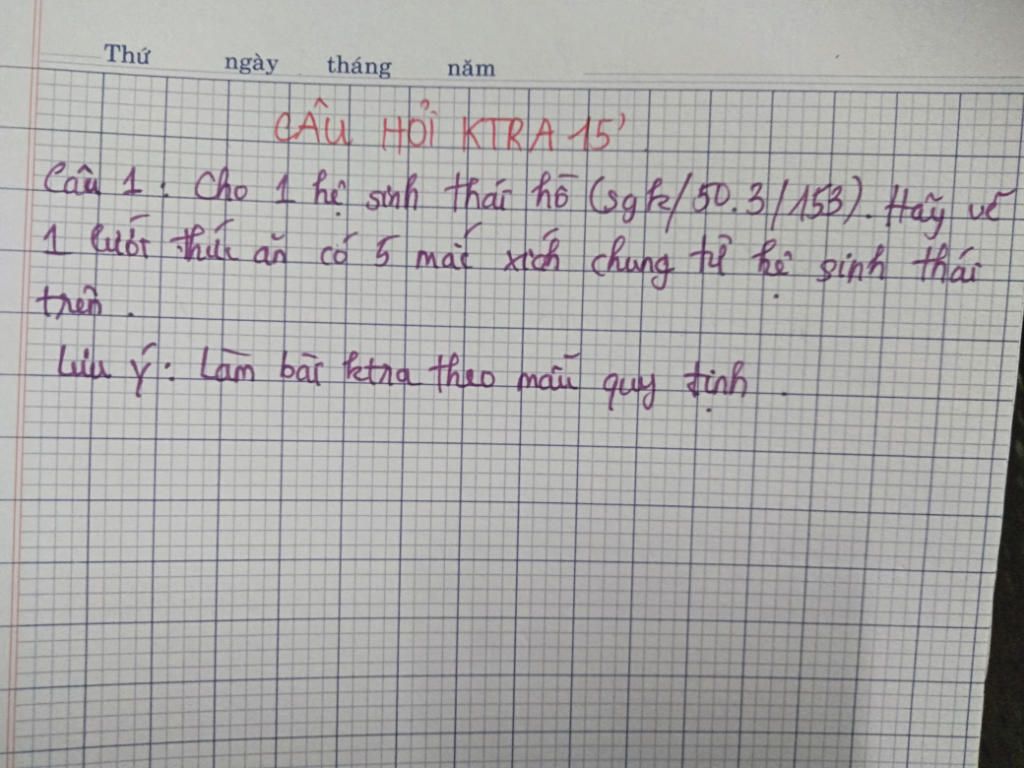 Thứ ngày tháng năm
CÂU HỎI KTRA 15'
Câu 1: Cho 1 hệ sinh thái hồ (sgk/50.3/153). Hãy vẽ
1 lưới thức ăn có 5 mắt xích chung từ hệ sinh thái
trên.
Lưu ý: Làm bài ktra theo mẫu quy định.